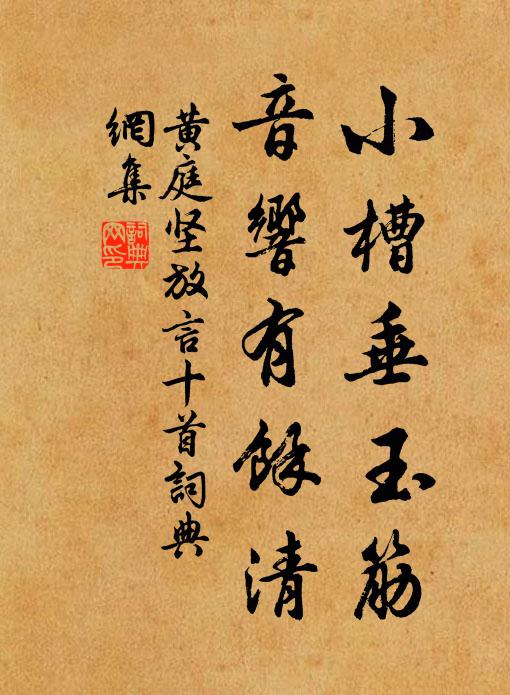 小槽垂玉筋
音響有餘清
黄庭坚放言十首詞典
網集
詞典
网印